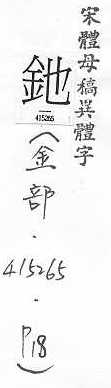 宋體母稿異體字
釶
415265
(金部.415265.P18)